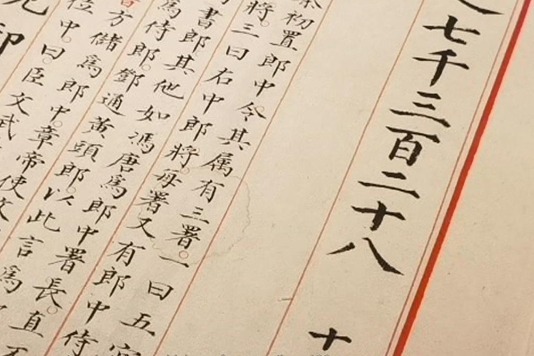 七千三百二十八
十
初置郎中令其属有三署。一曰五官
將。三曰右中郎將。每署又有郎中侍
書郎其他如馮唐爲郎中署長。直不
爲侍郎。鄧通黄頭郎。以此言爲
方儲爲郎中。章帝使文
位中。曰。臣文武